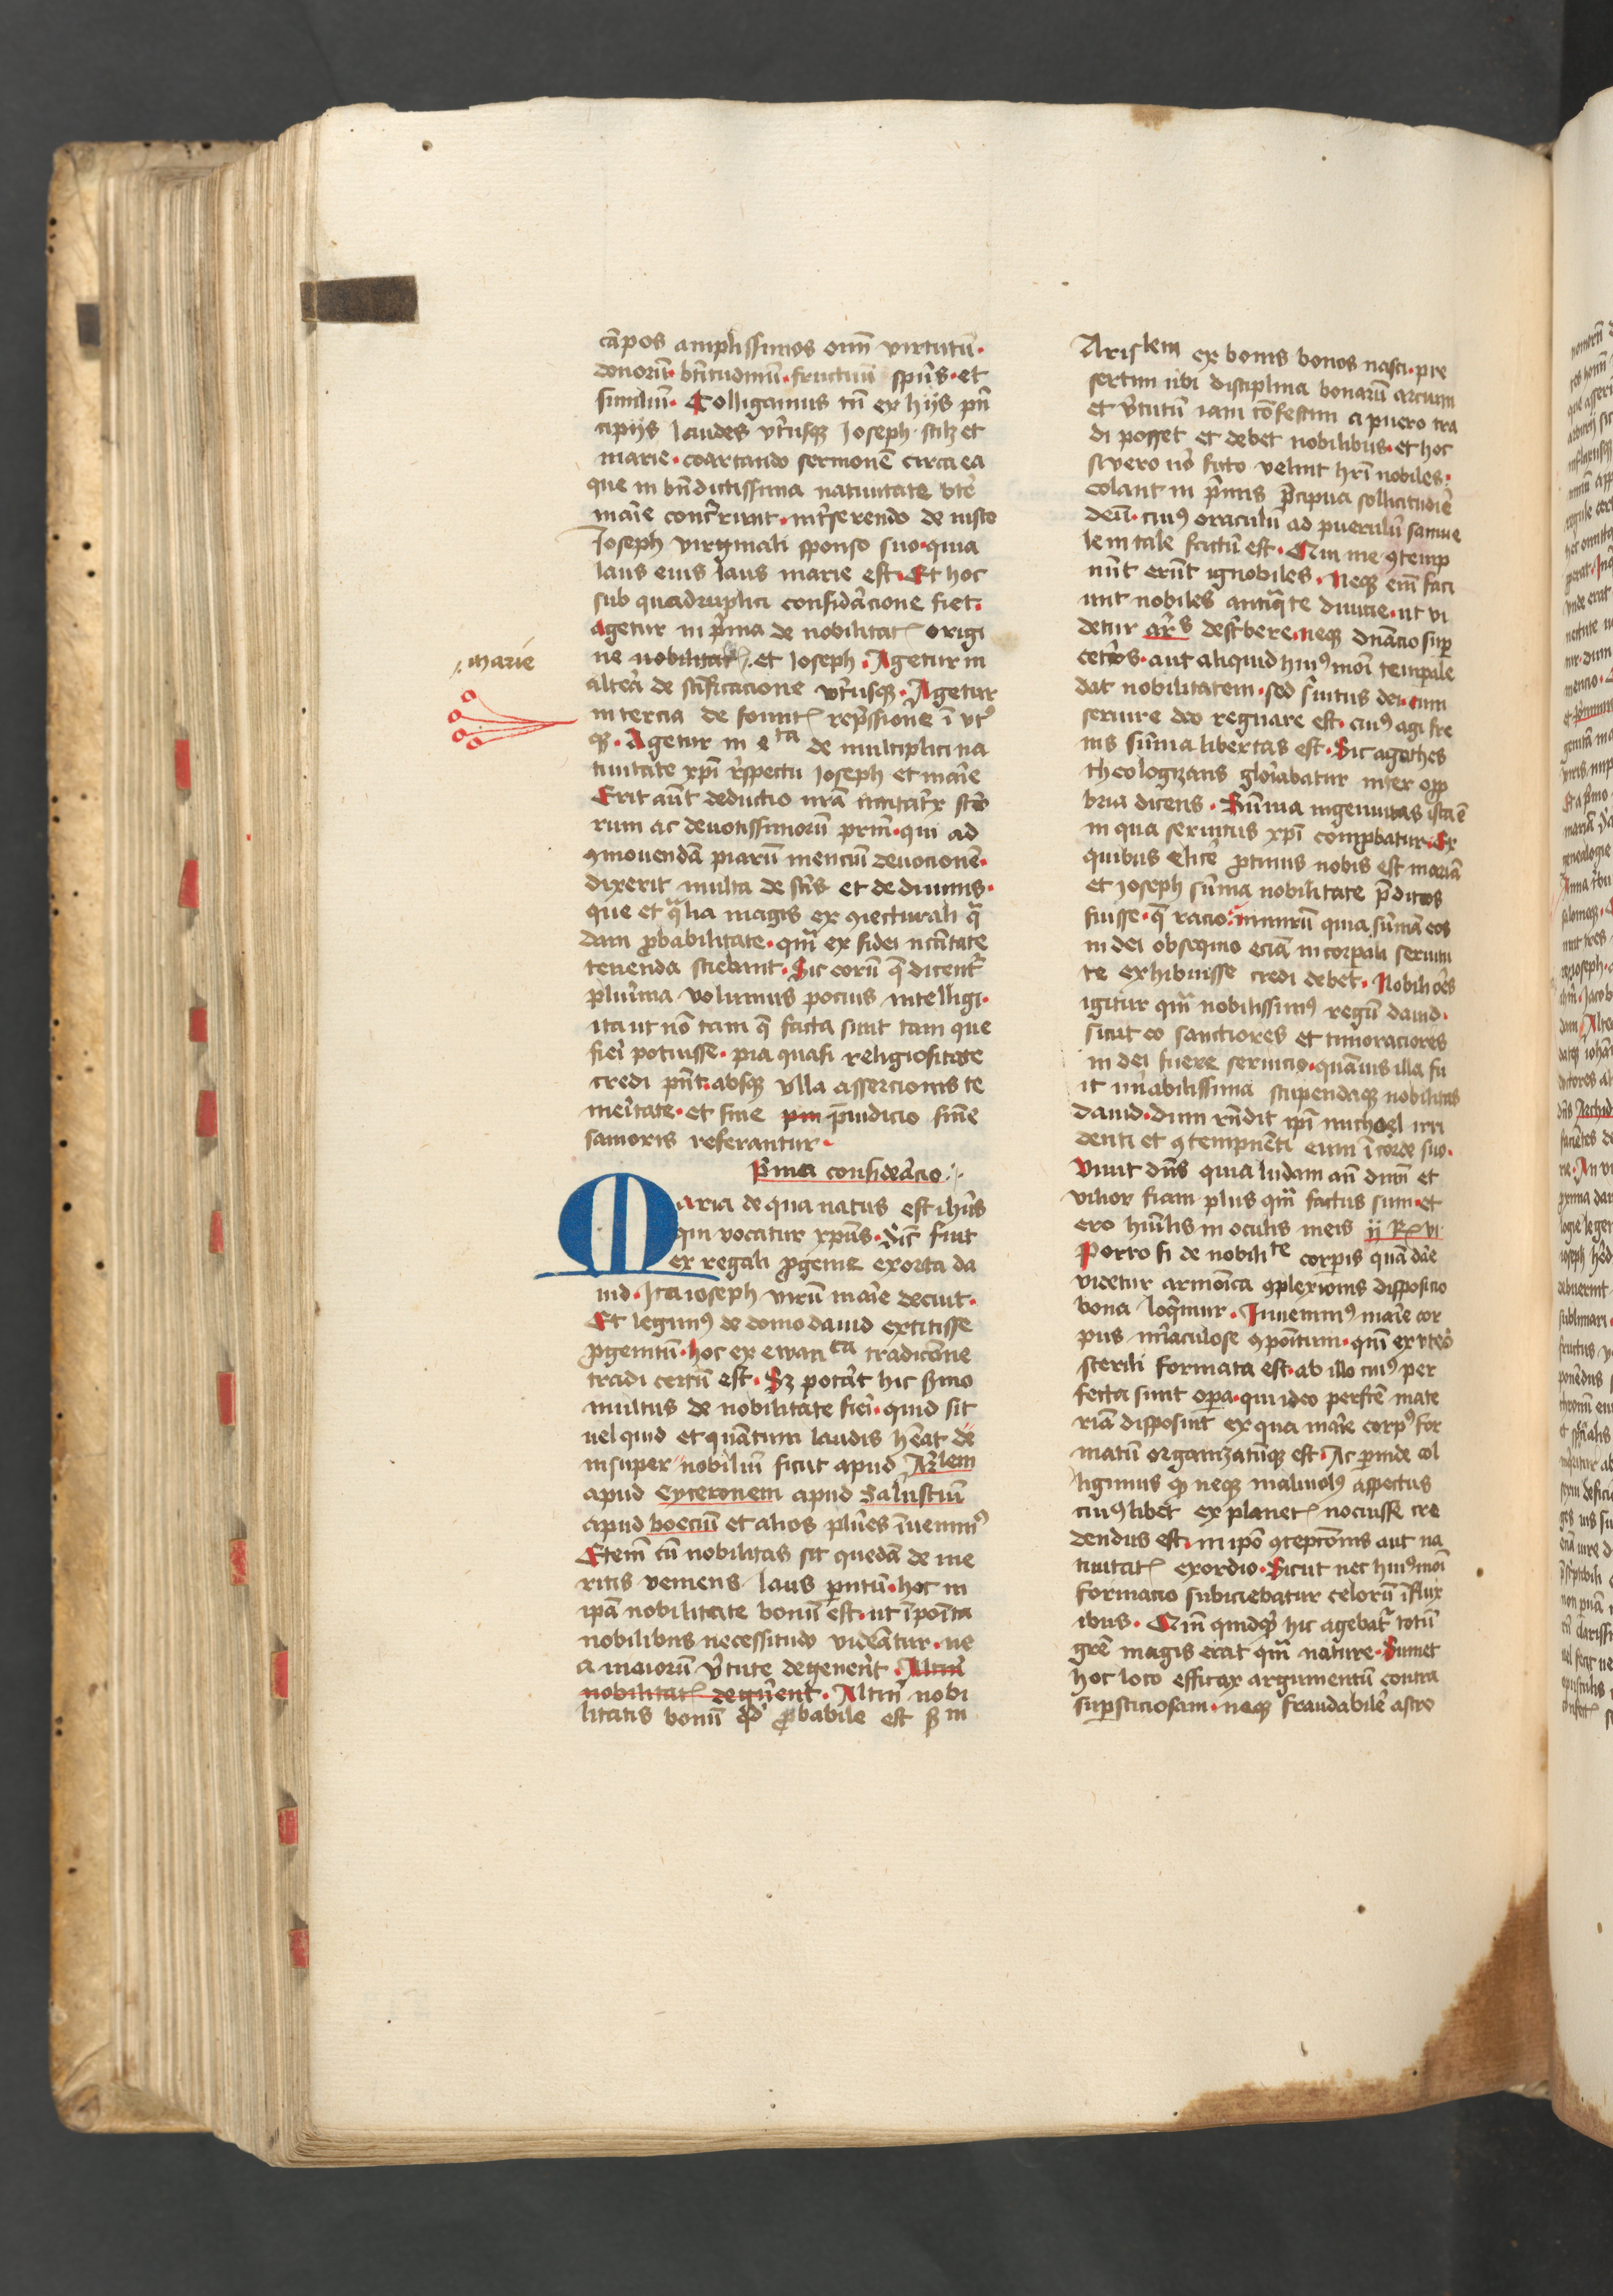 cāpos amplissimos oīm virtutū.
donorū. bt̄itudinū. fructuū spūs. et
similiū. Colligamus tn̄ ex hijs prī
cipijs laudes vtriusq Joseph. scilz et
marie. coartando sermonē circa ea
que in bn̄dictissima natiuitate bt̄e
marie concurrunt. inserendo de iusto
Joseph virginali sponso suo. quia
laus eius laus marie est. Et hoc
sub quadruplici considāacione fiet.
Agetur in p̄ma de nobilitate origi
ne nobilitate. et Joseph. Agetur in
marie
altera de sc̄ificacione vtriusq. Agetur
in tercia de fomitis rep̄ssione ī vtro
q. Agetur in 4ta de multiplici na
tiuitate xpī respectu Joseph et marie
Erit aūt deductio nrā imitatrix scō
rum ac deuotissimorū patrū. qui ad
ꝯmouendā piarū mencium deuocionē.
dixerit multa de scīs et de diuinis.
que et qualia magis ex ꝯiecturali qua
dam probabilitate. qm̄ ex fidei necitate
tenenda sciebant. Sic eorū que dicentur
plurima volumus pocius intelligi.
ita ut nō tam que facta sunt tam que
fieri potuisse. pia quasi religiositate
credi pn̄t. absq vlla assercionis te
meritate. et sine pm preiudicio sine
sanioris referantur.
Prima consideracio.
Maria de qua natus est ihūs
qui vocatur xpūs. Sicut fuit
ex regali progenie exorta da
uid. Ita ioseph virū marie decuit.
Et legimus de domo dauid extitisse
progenitū. hoc ex ewan ca tradicione
tradi certū est. Sz poterat hic sermo
multus de nobilitate fieri. quid sit
uel quid et quantum laudis habeat de
insuper nobiliū sicut apud Arlem
apud Cyceronem apud Salustiū
apud boeciū et alios plures inuenimus
Etenī cū nobilitas sit quedā de me
ritis veniens laus parentū. hoc in
ipā nobilitate bonū est. ut īposita
nobilibus necessitudo videatur. ne
a maiorū virtute degenerent. Alterū
nobilitatis degenerent. Alterū nobi
litatis bonū qd probabile est sm
Aristlem ex bonis bonos nasci. pre
sertim ubi disciplina bonarū arcium
et virtutū iam cōfestim a puero tra
di posset et debet nobilibus. et hoc
si vero nō ficto velint hrī nobiles.
colant in primis precipua sollicitudine
deū. cuius oraculū ad puerulū samue
lem tale factū est. Qui me ꝯtemp
nūt erūt ignobiles. Neq enī faci
unt nobiles antiquate diuicie. ut vi
detur ars describere. neq dnacio super
ceteros. aut aliquid huiusmōi temporale
dat nobilitatem. sed seruitus dei. cum
seruire deo regnare est. cuius agi fre
nis sūma libertas est. Sic agathes
theologizans gloriabatur inter oppro
bria dicens. Sūma ingenuitas ista ē
in qua seruitus xpī comprobatur. Ex
quibus elicere protinus nobis est mariā
et Joseph sūma nobilitate preditos
fuisse. que racio. nimirū quia sūmā eos
in dei obsequio eciā in corporali seruitu
te exhibuisse credi debet. Nobiliores
igitur qm̄ nobilissimus regū dauid.
sicut eo sanctiores et timoraciores
in dei fuere seruicio. quamuis illa fu
it mirabilissima stupendaq nobilitas
dauid. dum rn̄dit ipī michoel irri
denti et ꝯtempnēti eum ī corde suo.
Viuit dn̄s quia ludam an̄ dnm̄ et
vilior fiam plus qm̄ factus sum. et
ero humilis in oculis meis ij R vi
Porro si de nobilite corporis quam dare
videtur armonica ꝯplexionis disposicio
bona loquimur. Inuenimus marie cor
pus miraculose ꝯpositum. quī ex vtero
sterili formata est. ab illo cuius per
fecta sunt opera. qui ideo perfectē mate
riā disposuit ex qua marie corpus for
matū organizatūq est. Ac perinde col
ligimus quod neq maliuolus aspectus
cuiuslibet ex planetis nocuisse cre
dendus est. in ipso ꝯcepcionis aut na
tiuitatis exordio. Sicut nec huiusmōi
formacio subiciebatur celorū influx
ibus. Cum quidquid hic agebatur totū
gracie magis erat qm̄ nature. Sumet
hoc loco efficax argumentū contra
supersticiosam. neq fraudabilē astro